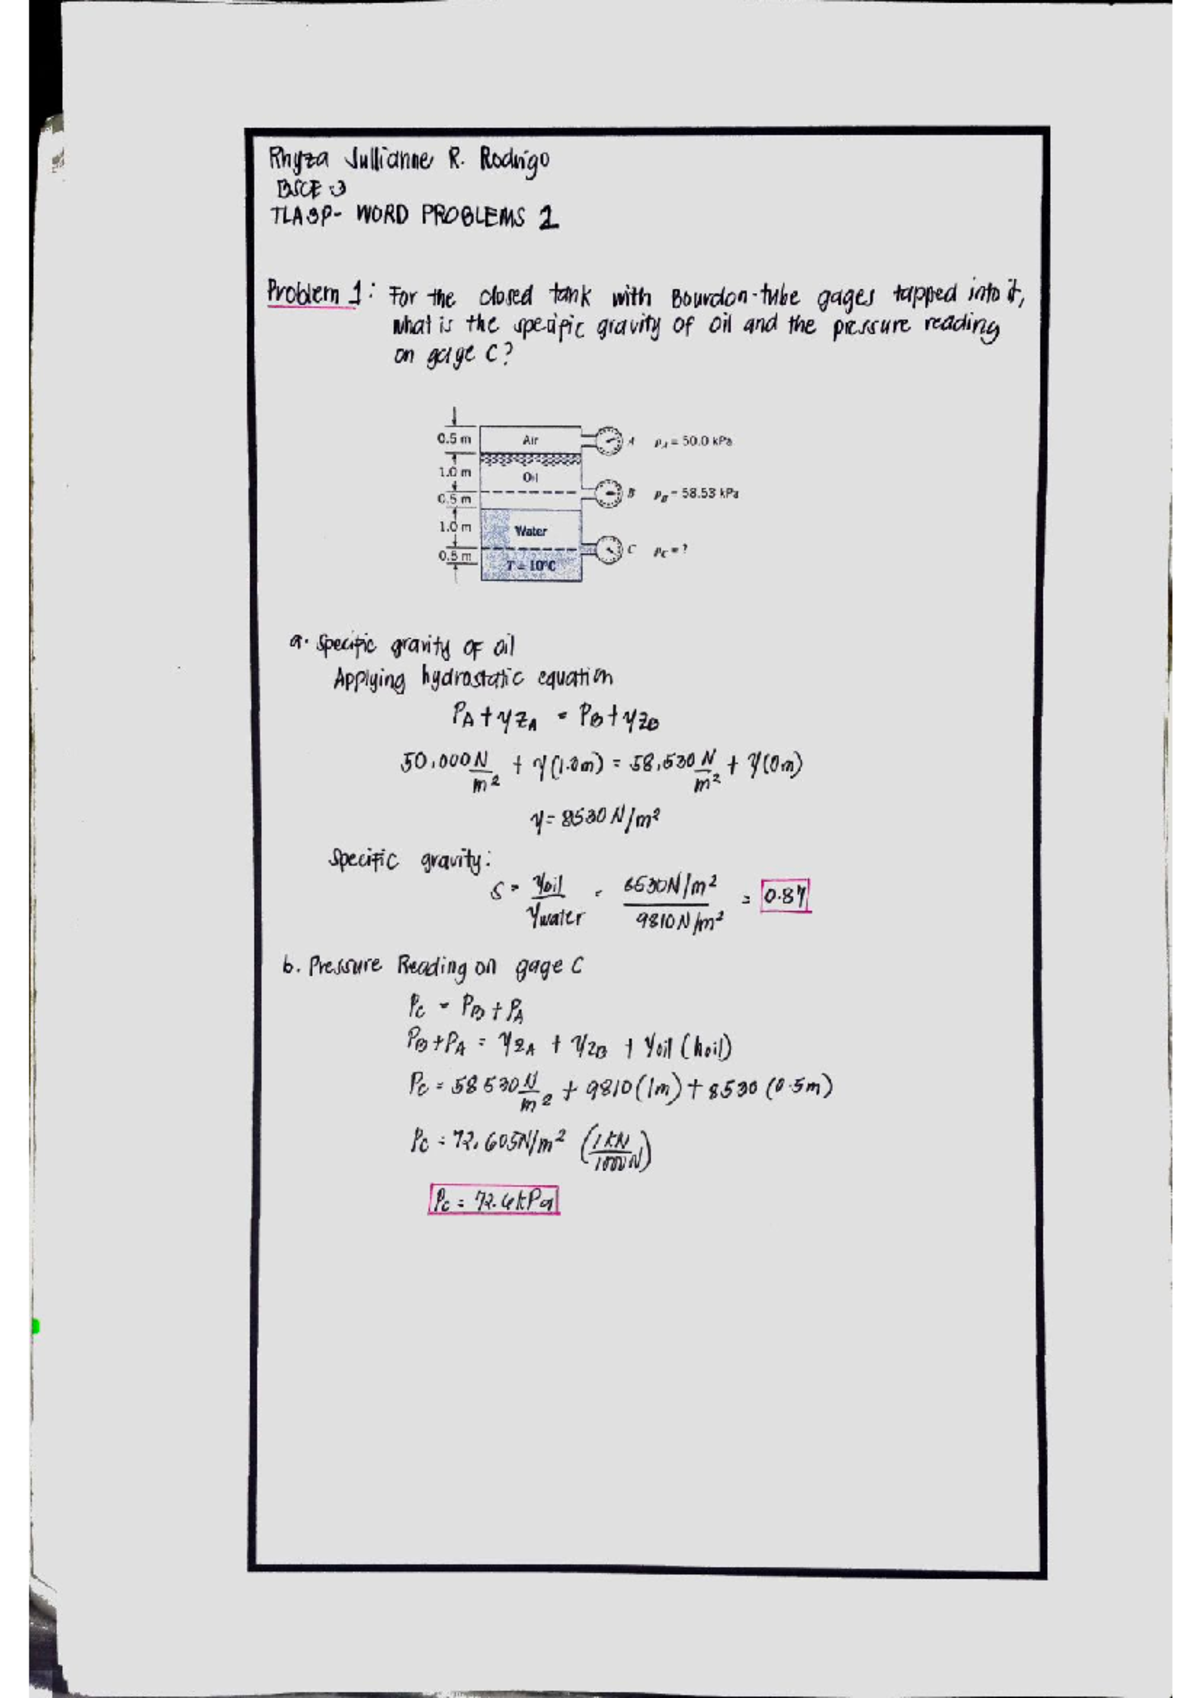 Rhyza Jullianne R. Rodrigo
BSCE-3
TLA3P- WORD PROBLEMS 1
Problem 1: For the closed tank with Bourdon-tube gages tapped into it,
what is the specific gravity of oil and the pressure reading
on gage C?
0.5 m Air A p_A = 50.0 kPa
1.0 m Oil
0.5 m B p_B = 58.53 kPa
1.0 m Water
0.5 m C p_C = ?
T = 10°C
a. Specific gravity of oil
Applying hydrostatic equation
P_A + γz_A = P_B + γz_B
50,000 N/m² + γ(1.0m) = 58,530 N/m² + γ(0m)
γ = 8530 N/m²
Specific gravity:
S = γoil/γwater = 8530N/m²/9810N/m² = 0.87
b. Pressure Reading on gage C
P_C = P_B + P_A
P_B + P_A = γz_A + γz_B + γoil (hoil)
P_C = 58530 N/m² + 9810(1m) + 8530 (0.5m)
P_C = 72,605N/m² (1 KN/1000N)
P_C = 72.6kPa